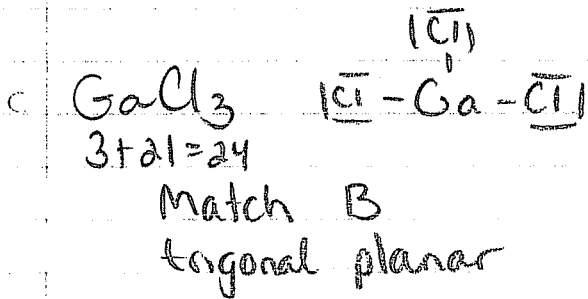 Cl
c GaCl3 Cl - Ga - Cl
3+21=24
Match B
trigonal planar